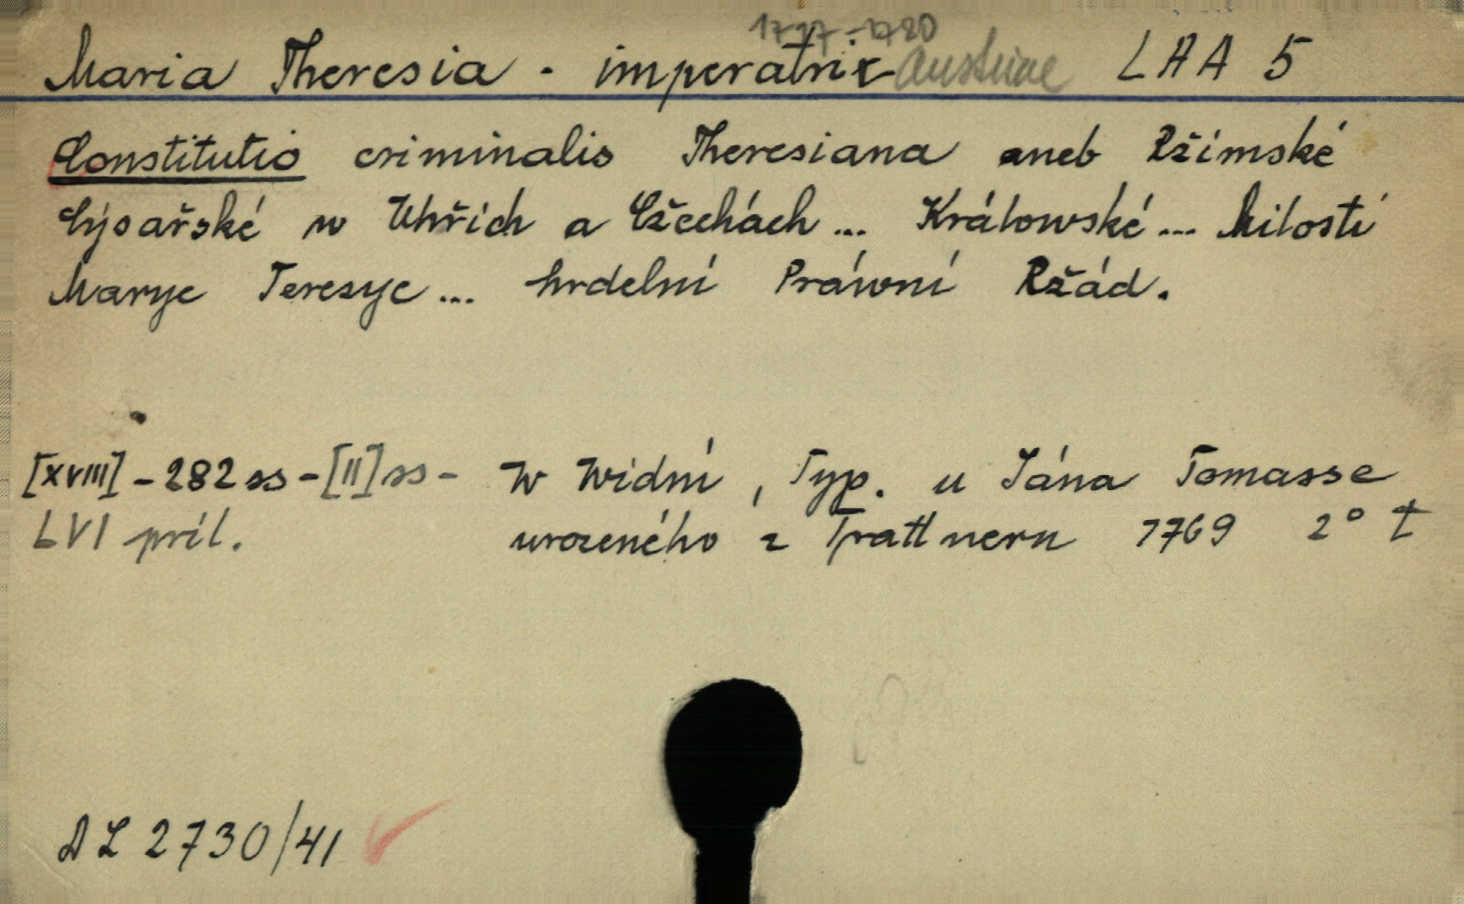 1717-1780
Maria Theresia - imperatrix Austriae LAA 5
Constitutio criminalis Theresiana aneb Ržímské
Cýsařské w Uhřích a Cžechách... Králowské... Milosti
Marye Teresye... hrdelní Práwní Ržád.
[XVIII] - 282 ss - [II] ss - W Widni, Typ. u Jána Tomasse
LVI príl. urozeného z Trattnern 1769 2° t
AL 2730/41